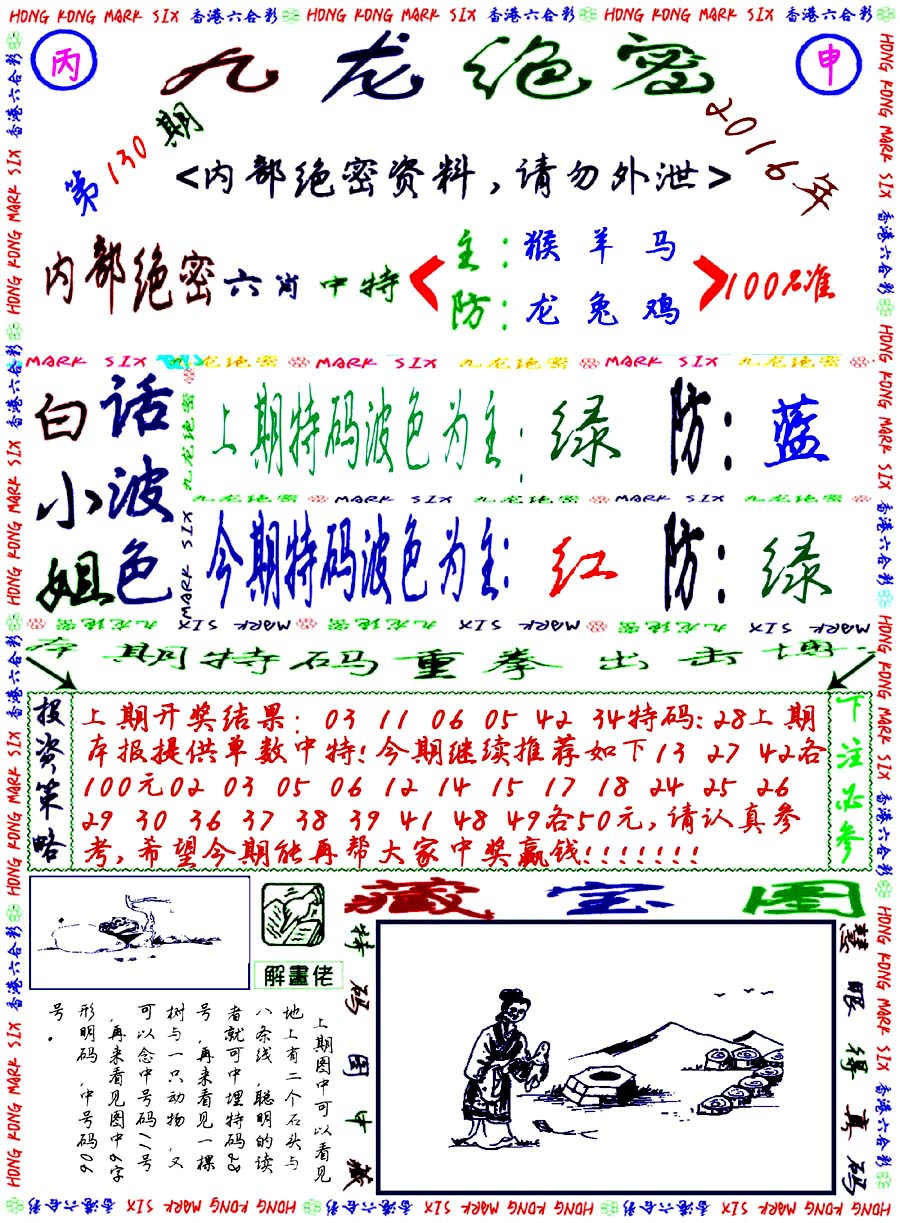 HONG KONG MARK SIX 香港六合彩 HONG KONG MARK SIX 香港六合彩 HONG KONG MARK SIX 香港六合彩
丙 九龙绝密 申
第130期 2016年
<内部绝密资料，请勿外泄>
内部绝密六肖中特
主：猴 羊 马
防：龙 兔 鸡
100%准
MARK SIX 九龙绝密 MARK SIX 九龙绝密 MARK SIX 九龙绝密
白话小姐
波色
上期特码波色为主：绿 防：蓝
九龙绝密 MARK SIX 九龙绝密 MARK SIX 九龙绝密
今期特码波色为主：红 防：绿
九龙绝密 MARK SIX 九龙绝密 MARK SIX 九龙绝密 MARK SIX
本期特码重拳出击博
投资策略
上期开奖结果：03 11 06 05 42 34特码:28上期
本报提供单数中特!今期继续推荐如下13 27 42各
100元02 03 05 06 12 14 15 17 18 24 25 26
29 30 36 37 38 39 41 48 49各50元,请认真参
考,希望今期能再帮大家中奖赢钱!!!!!!!
下注必参
藏宝图
解畫佬
特码图中藏
慧眼得真码
上期图中可以看见
地上有二个石头与
八条线，聪明的读
者就可中埋特码28
号，再来看见一棵
树与一只动物，又
可以念中号码11号
，再来看见图中6字
形明码，中号码06
号。
HONG KONG MARK SIX 香港六合彩 HONG KONG MARK SIX 香港六合彩 HONG KONG MARK SIX 香港六合彩